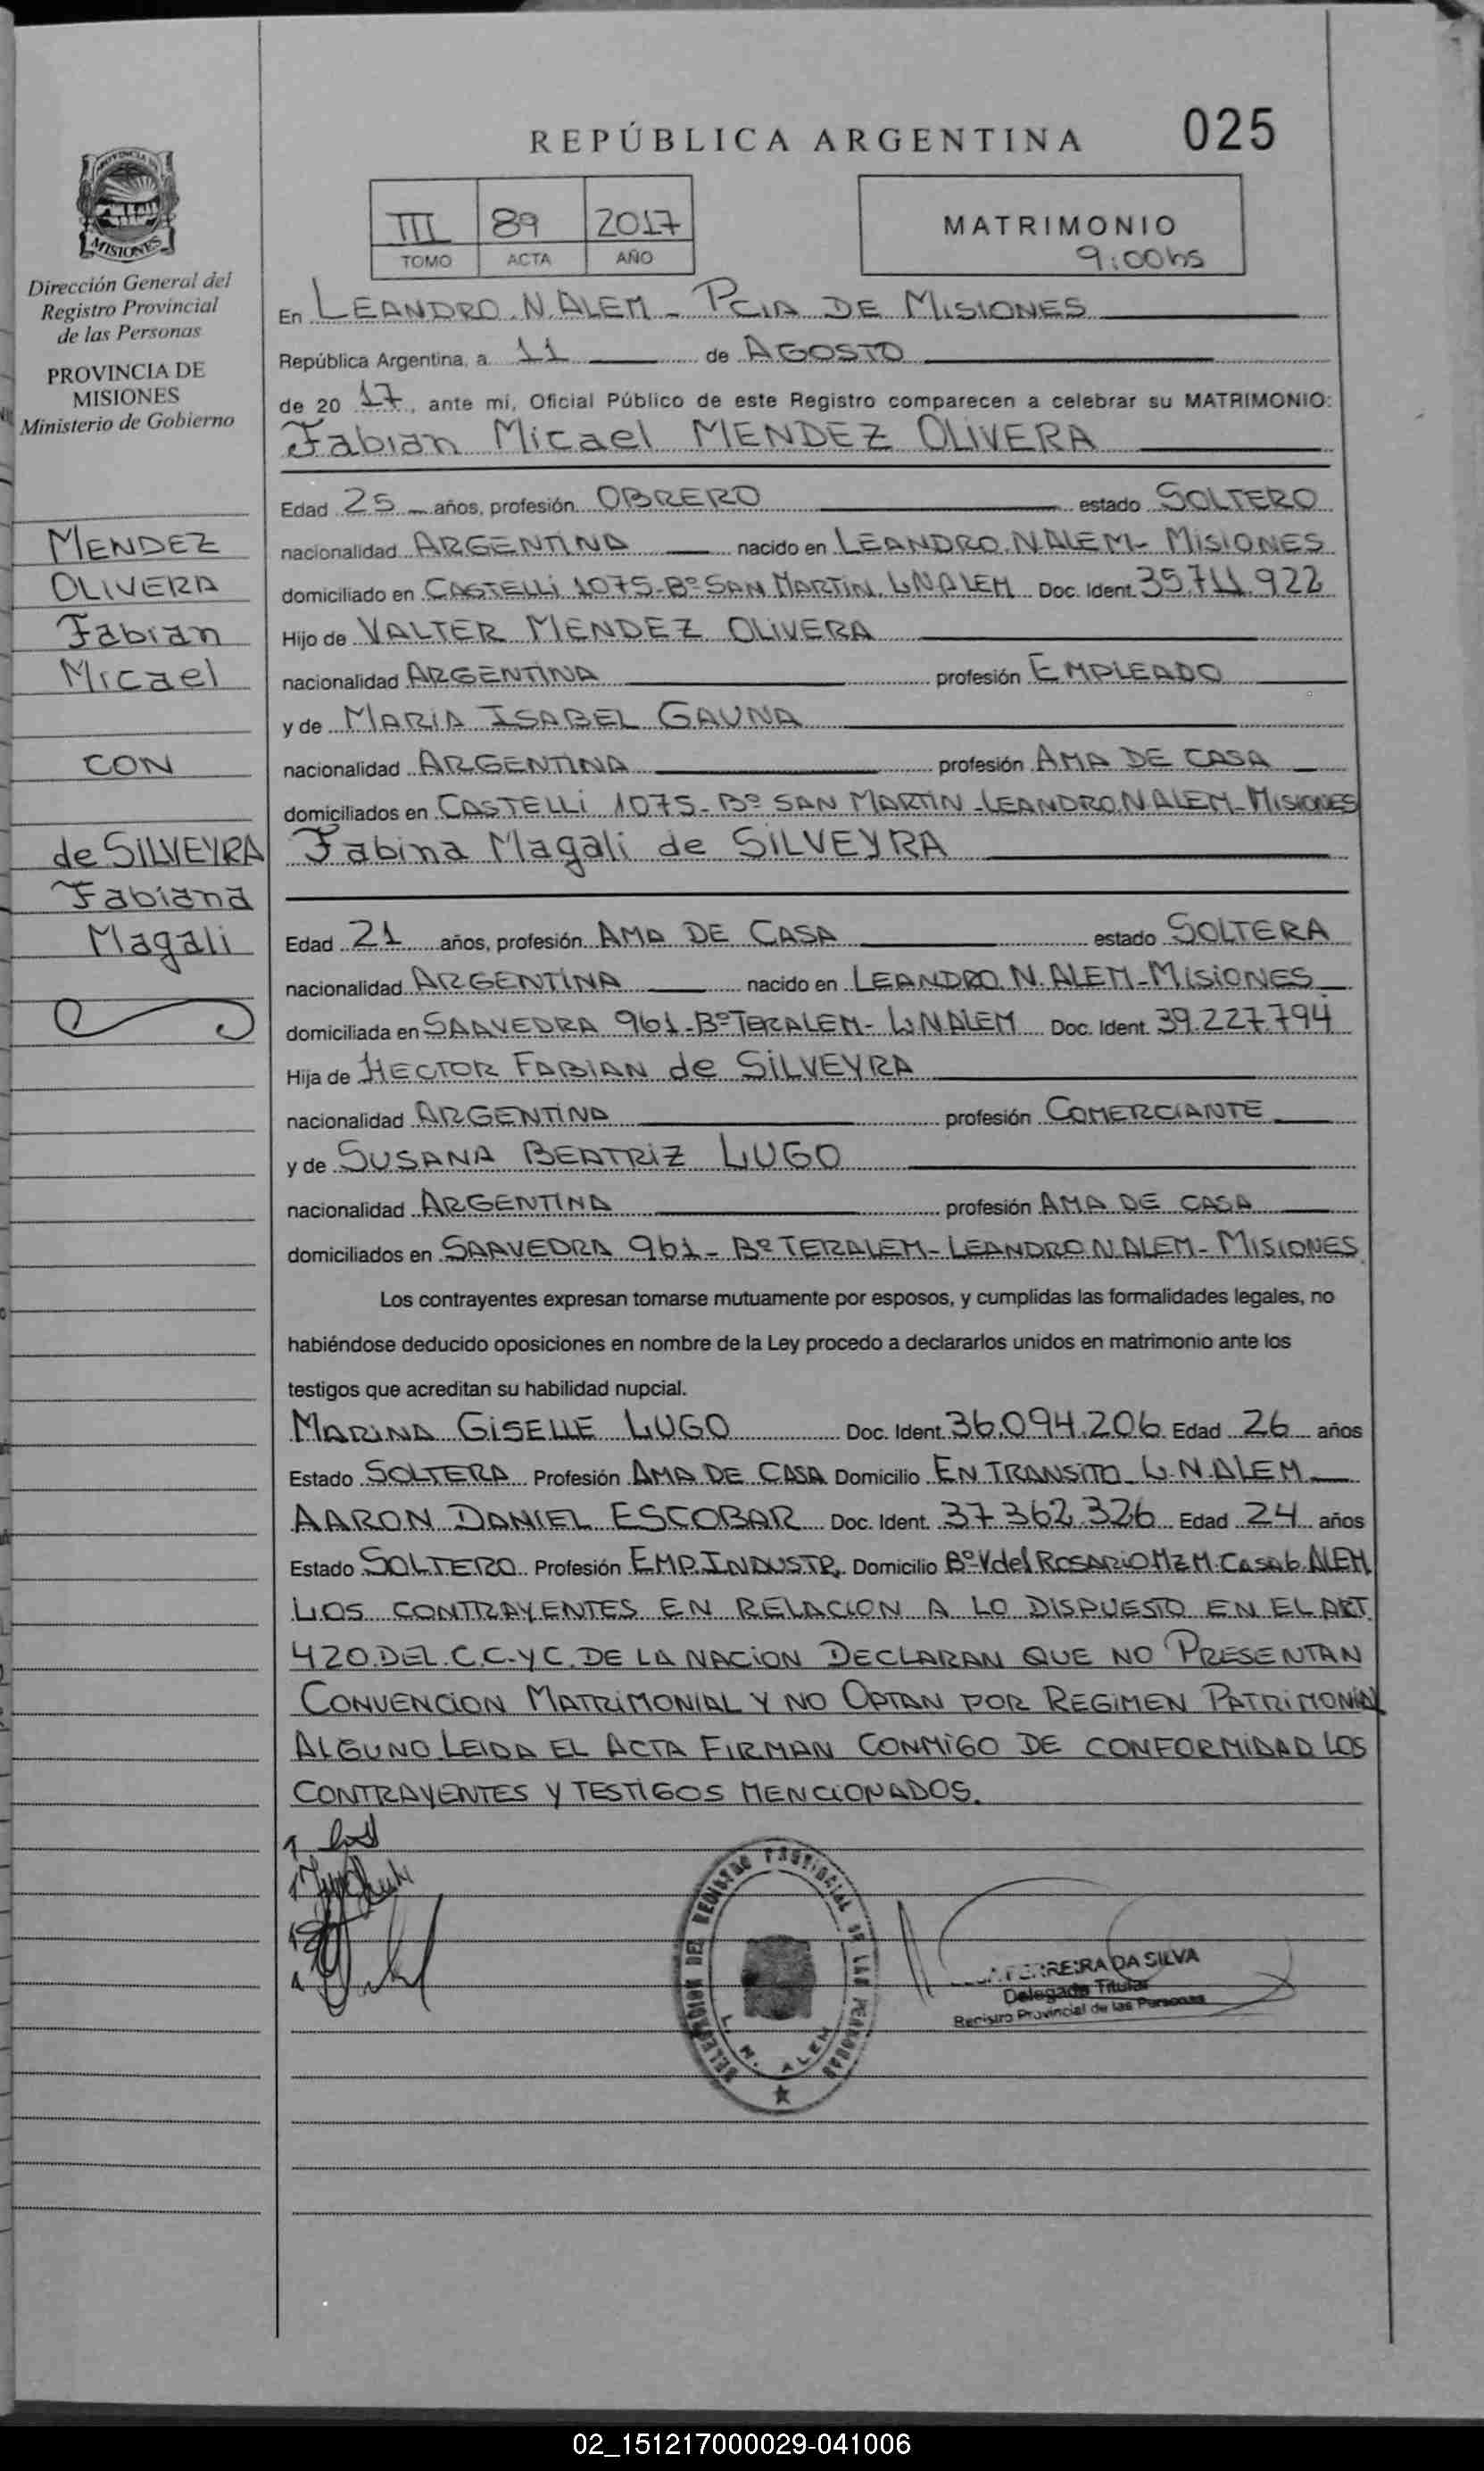 REPÚBLICA ARGENTINA 025
III 89 2017
TOMO ACTA AÑO
MATRIMONIO
9:00hs
PROVINCIA DE
MISIONES
Dirección General del
Registro Provincial
de las Personas
PROVINCIA DE
MISIONES
Ministerio de Gobierno
MENDEZ
OLIVERA
Fabian
Micael
CON
de SILVEYRA
Fabiana
Magali
En LEANDRO.N.ALEM - PCIA DE MISIONES
República Argentina, a 11 de AGOSTO
de 20 17, ante mí, Oficial Público de este Registro comparecen a celebrar su MATRIMONIO:
Fabian Micael MENDEZ OLIVERA
Edad 25 años, profesión OBRERO estado SOLTERO
nacionalidad ARGENTINA nacido en LEANDRO.N.ALEM- MISIONES
domiciliado en CASTELLI 1075-Bº SAN MARTIN. L.N.ALEM Doc. Ident. 35.711.922
Hijo de VALTER MENDEZ OLIVERA
nacionalidad ARGENTINA profesión EMPLEADO
y de MARIA ISABEL GAUNA
nacionalidad ARGENTINA profesión AMA DE CASA
domiciliados en CASTELLI 1075- Bº SAN MARTIN-LEANDRO.N.ALEM-MISIONES
Fabina Magali de SILVEYRA
Edad 21 años, profesión AMA DE CASA estado SOLTERA
nacionalidad ARGENTINA nacido en LEANDRO. N. ALEM-MISIONES
domiciliada en SAAVEDRA 961-BºTERALEM- L.N.ALEM Doc. Ident. 39.227.794
Hija de HECTOR FABIAN de SILVEYRA
nacionalidad ARGENTINA profesión COMERCIANTE
y de SUSANA BEATRIZ LUGO
nacionalidad ARGENTINA profesión AMA DE CASA
domiciliados en SAAVEDRA 961- Bº TERALEM-LEANDRO N.ALEM- MISIONES
Los contrayentes expresan tomarse mutuamente por esposos, y cumplidas las formalidades legales, no
habiéndose deducido oposiciones en nombre de la Ley procedo a declararlos unidos en matrimonio ante los
testigos que acreditan su habilidad nupcial.
MARINA GISELLE LUGO Doc. Ident. 36.094.206 Edad 26 años
Estado SOLTERA Profesión AMA DE CASA Domicilio EN TRANSITO L.N.ALEM
AARON DANIEL ESCOBAR Doc. Ident. 37.362.326 Edad 24 años
Estado SOLTERO Profesión EMP.INDUSTR. Domicilio Bº V del ROSARIO MZ M. Casa 6. ALEM
LOS CONTRAYENTES EN RELACION A LO DISPUESTO EN EL ART.
420.DEL.C.C.Y C. DE LA NACION DECLARAN QUE NO PRESENTAN
CONVENCION MATRIMONIAL Y NO OPTAN POR REGIMEN PATRIMONIAL
ALGUNO LEIDA EL ACTA FIRMAN CONMIGO DE CONFORMIDAD LOS
CONTRAYENTES Y TESTIGOS MENCIONADOS.
DELEGACION DEL REGISTRO PROVINCIAL DE LAS PERSONAS
L. N. ALEM
FERREIRA DA SILVA
Delegada Titular
Registro Provincial de las Personas
02_151217000029-041006